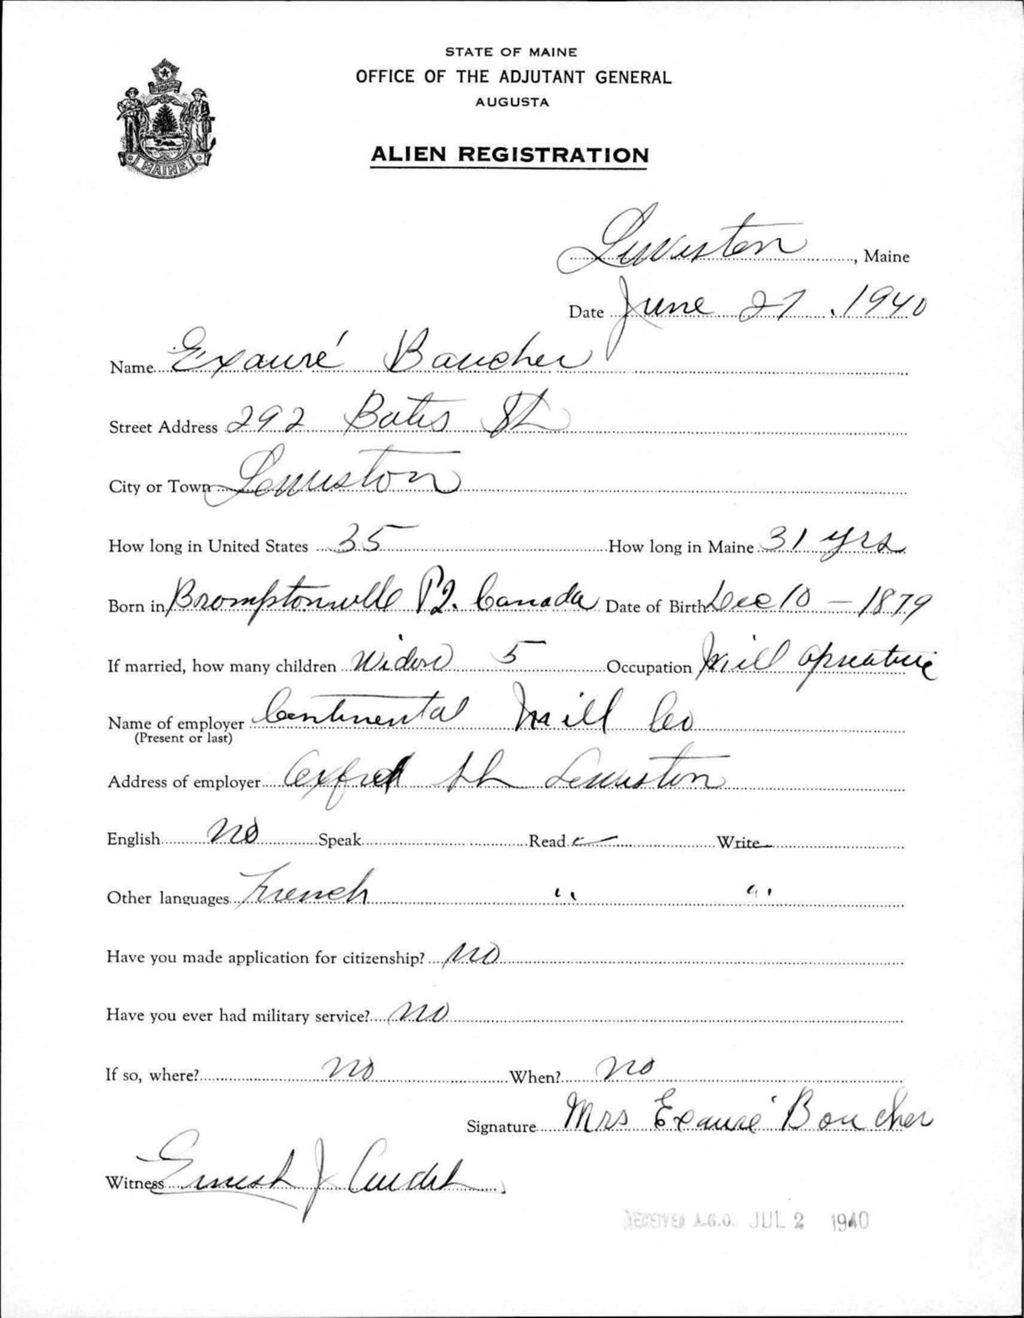 STATE OF MAINE
OFFICE OF THE ADJUTANT GENERAL
AUGUSTA
ALIEN REGISTRATION
MAINE
Lewiston, Maine
Date June 27, 1940
Name Exauré Boucher
Street Address 292 Bates St
City or Town Lewiston
How long in United States 35 How long in Maine 31 yrs
Born in Bromptonville P2. Canada Date of Birth Dec 10 - 1879
If married, how many children Widow 5 Occupation Mill operative
Name of employer Continental Mill Co
(Present or last)
Address of employer Oxford St Lewiston
English no Speak Read Write
Other languages French " "
Have you made application for citizenship? no
Have you ever had military service? no
If so, where? no When? no
Signature Mrs Exauré Boucher
Witness Ernest J Audet
RECEIVED A.G.O. JUL 2 1940